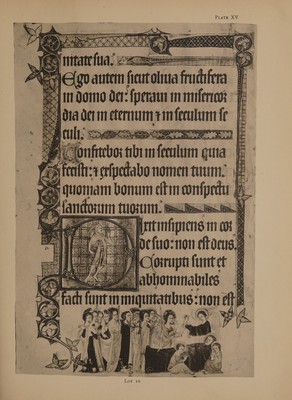 PLATE XV
nitate sua.
Ego autem sicut oliua fructifera
in domo dei: speraui in misericor
dia dei in eternum & in seculum se
culi.
Confitebor tibi in seculum quia
fecisti: & exspectabo nomen tuum.
quoniam bonum est in conspectu
sanctorum tuorum.
Dixit insipiens in cor
de suo: non est deus.
Corrupti sunt et
abhominabiles
facti sunt in iniquitatibus: non est
LOT 22